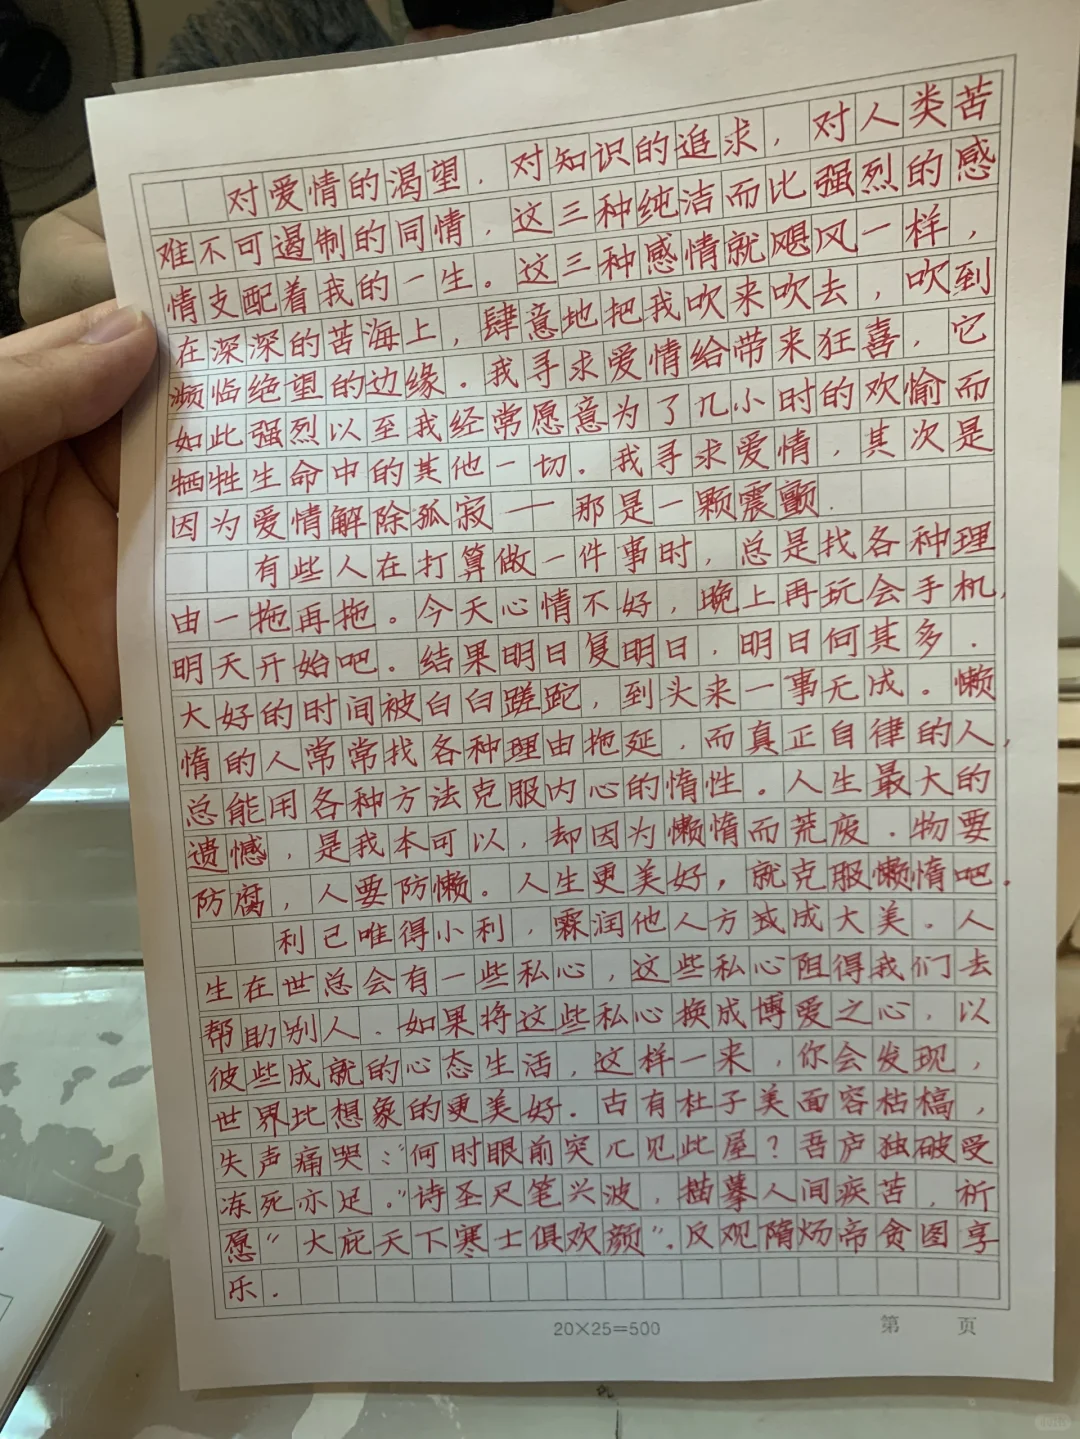 对爱情的渴望，对知识的追求，对人类苦
难不可遏制的同情，这三种纯洁而比强烈的感
情支配着我的一生。这三种感情就飓风一样，
在深深的苦海上，肆意地把我吹来吹去，吹到
濒临绝望的边缘。我寻求爱情给带来狂喜，它
如此强烈以至我经常愿意为了几小时的欢愉而
牺牲生命中的其他一切。我寻求爱情，其次是
因为爱情解除孤寂——那是一颗震颤.
有些人在打算做一件事时，总是找各种理
由一拖再拖。今天心情不好，晚上再玩会手机，
明天开始吧。结果明日复明日，明日何其多.
大好的时间被白白蹉跎，到头来一事无成。懒
惰的人常常找各种理由拖延，而真正自律的人，
总能用各种方法克服内心的惰性。人生最大的
遗憾，是我本可以，却因为懒惰而荒废.物要
防腐，人要防懒。人生更美好，就克服懒惰吧.
利己唯得小利，霖润他人方或成大美.人
生在世总会有一些私心，这些私心阻得我们去
帮助别人.如果将这些私心换成博爱之心，以
彼些成就的心态生活，这样一来，你会发现，
世界比想象的更美好.古有杜子美面容枯槁，
失声痛哭：“何时眼前突兀见此屋？吾庐独破受
冻死亦足。”诗圣尺笔兴波，描摹人间疾苦，祈
愿“大庇天下寒士俱欢颜”.反观隋炀帝贪图享
乐.
20×25=500
第 页